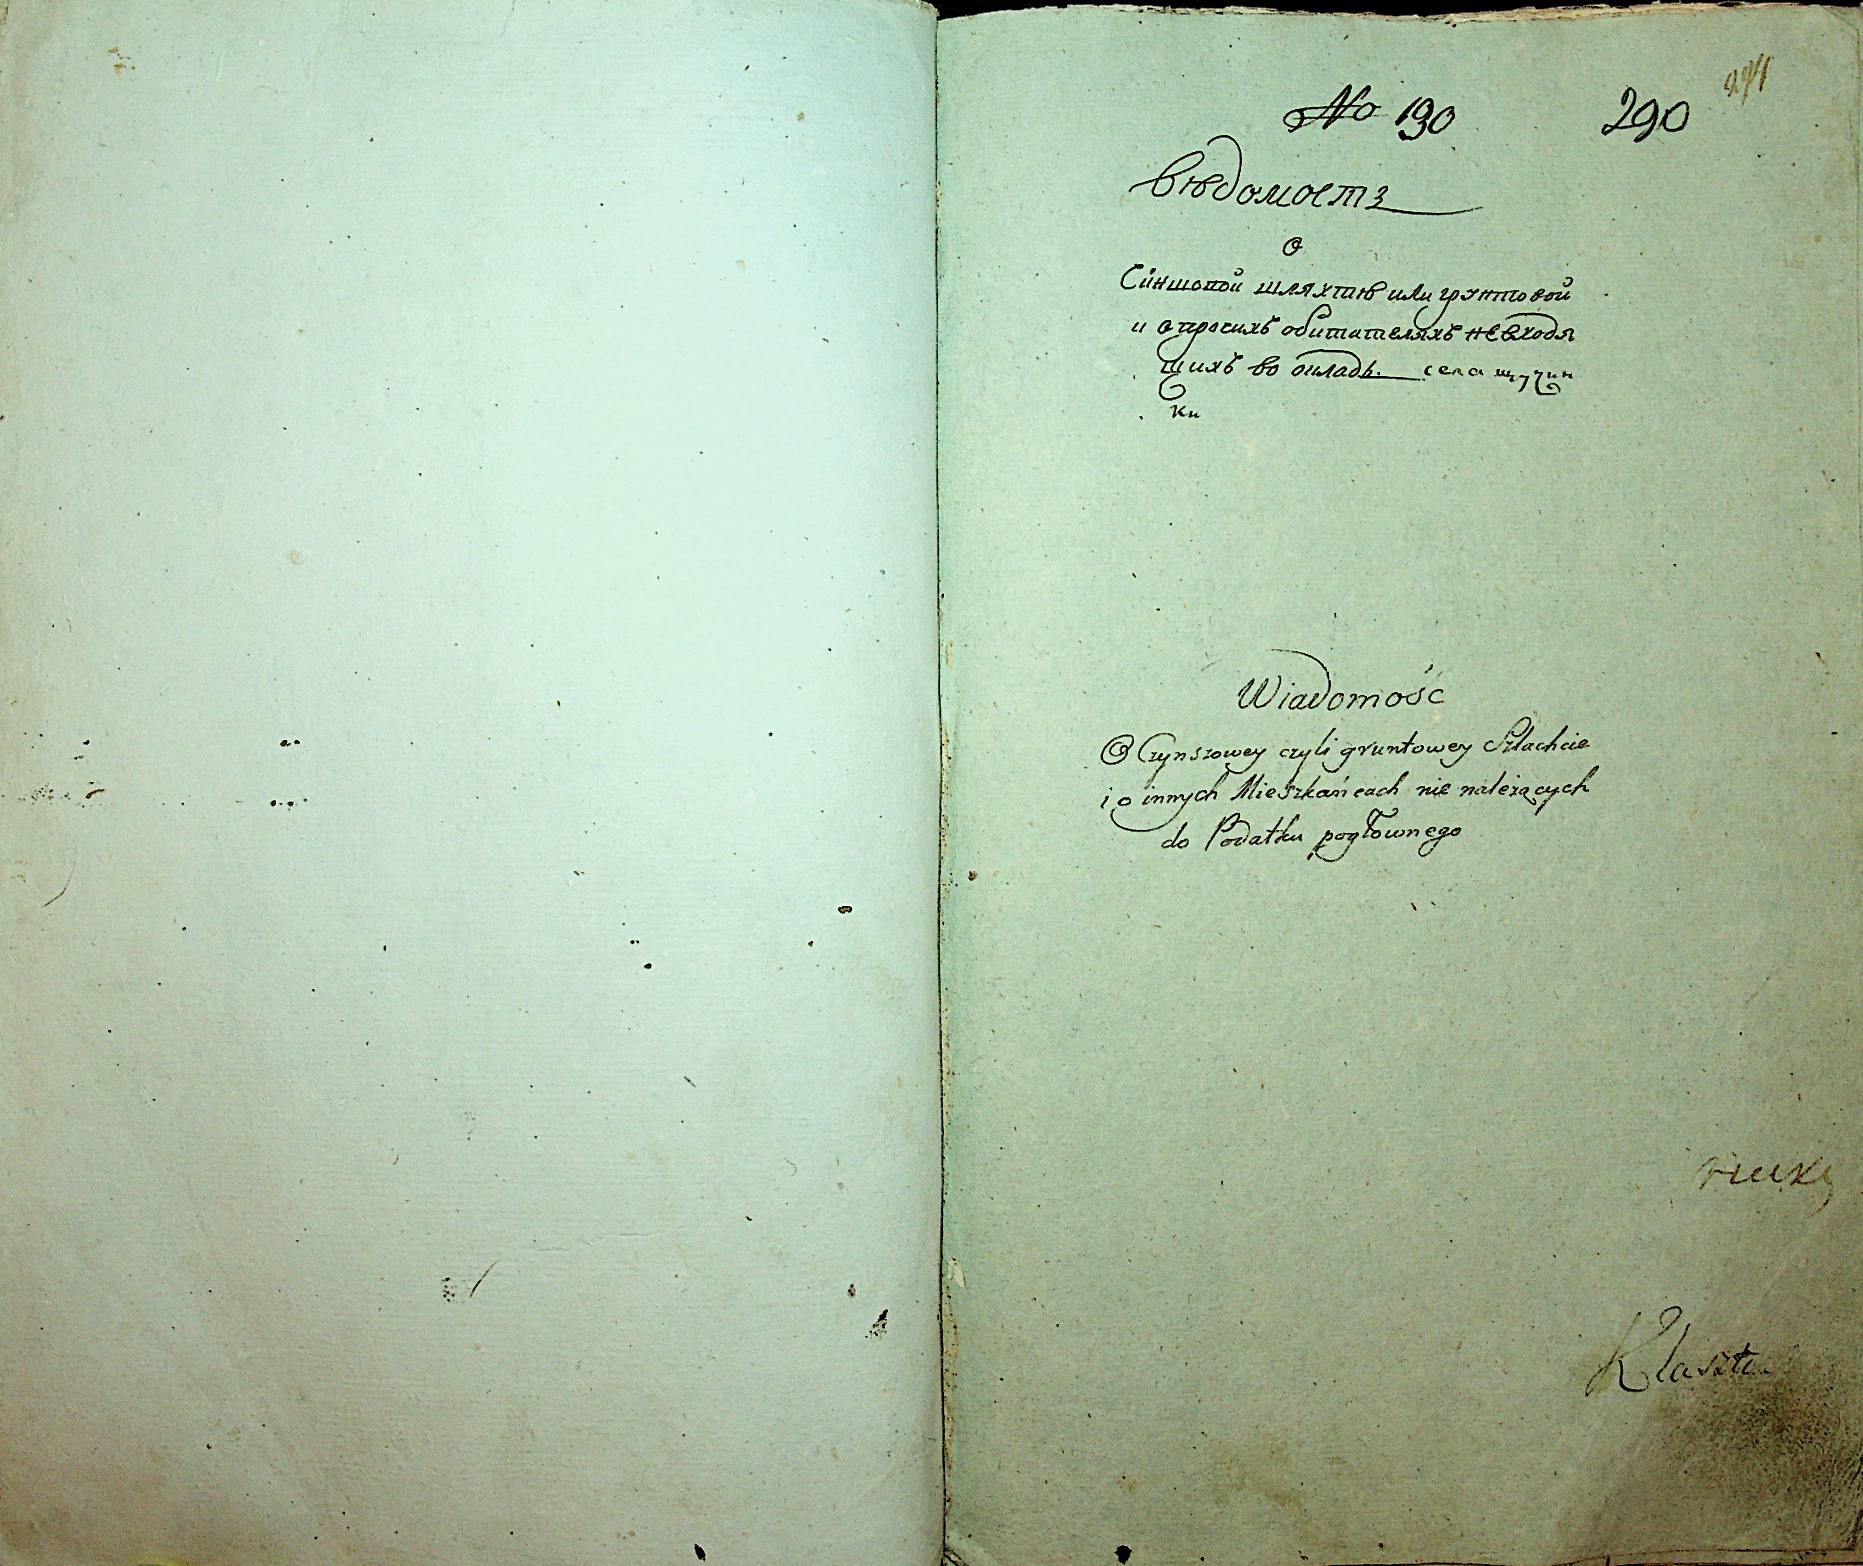 No 190 290
Вѣдомость
о
Синшовой шляхтѣ или грунтовой
и о протихъ обитателяхъ невходя
щихъ во окладъ. села щучин
ки
Wiadomość
O Czynszowey czyli gruntowey Szlachcie
i o innych Mieszkańcach nie należących
do Podatku pogłownego